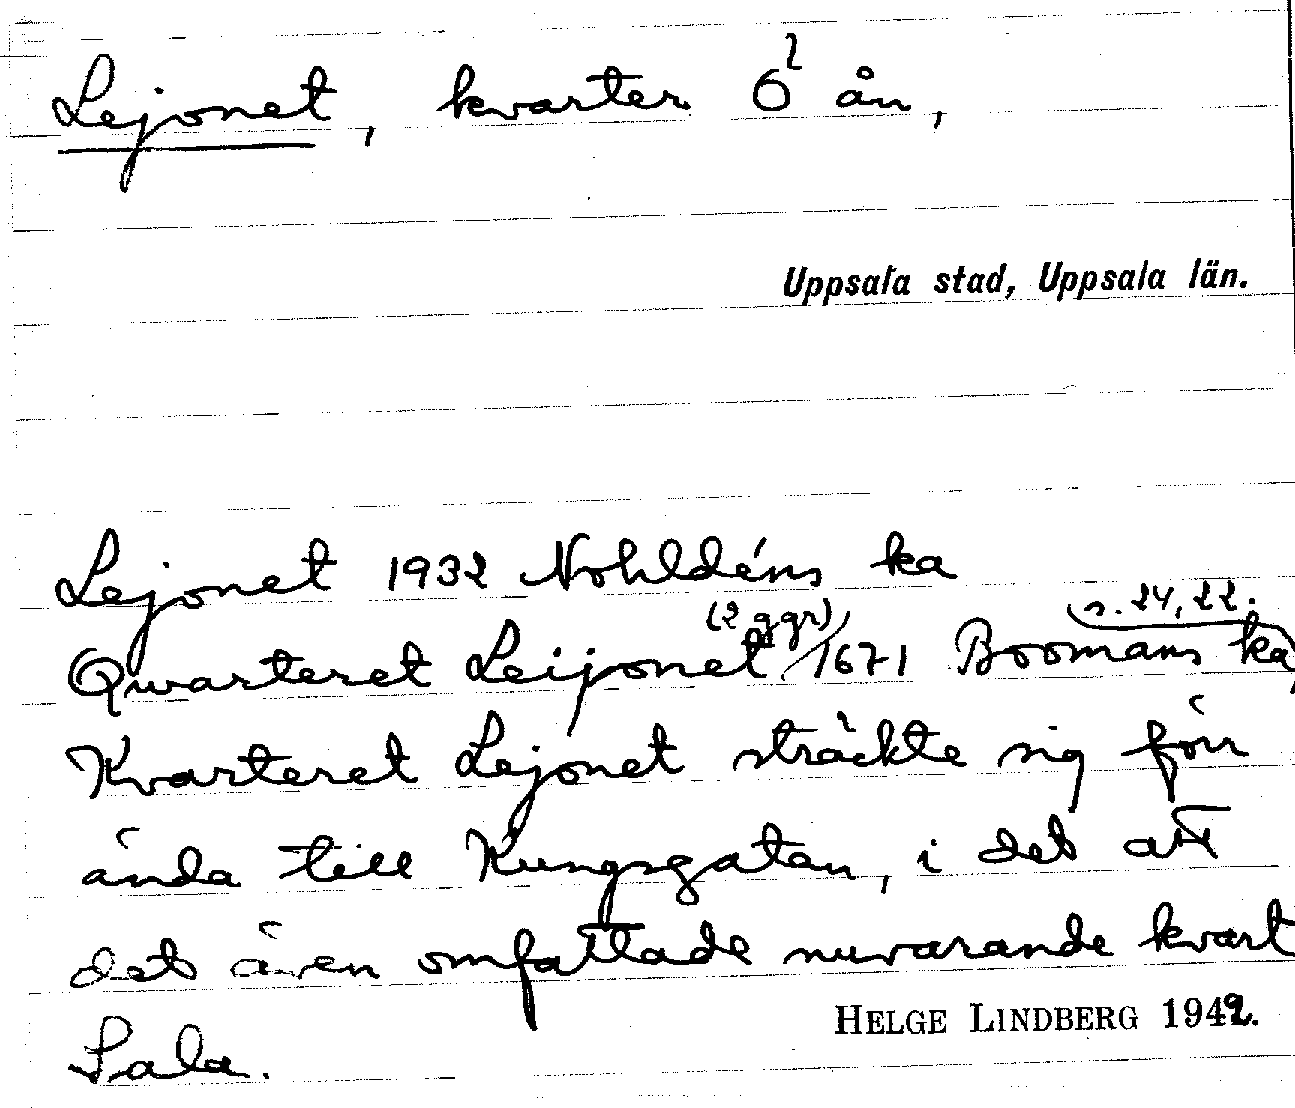 Lejonet, kvarter Ö ån,
Uppsala stad, Uppsala län.
Lejonet 1932 Nohldéns ka
(2 ggr) (s. 24, 22.
Qwarteret Leijonet 1671 Boomans ka,
Kvarteret Lejonet sträckte sig förr
ända till Kungsgatan, i det att
det även omfattade nuvarande kvart
Sala.
HELGE LINDBERG 1942.